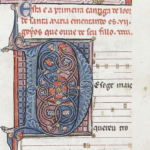 Esta e a primeira cantiga de loor
de santa maria ementando os .vij.
goyos que ouue de seu fillo.
Esoge mais
quereu tro